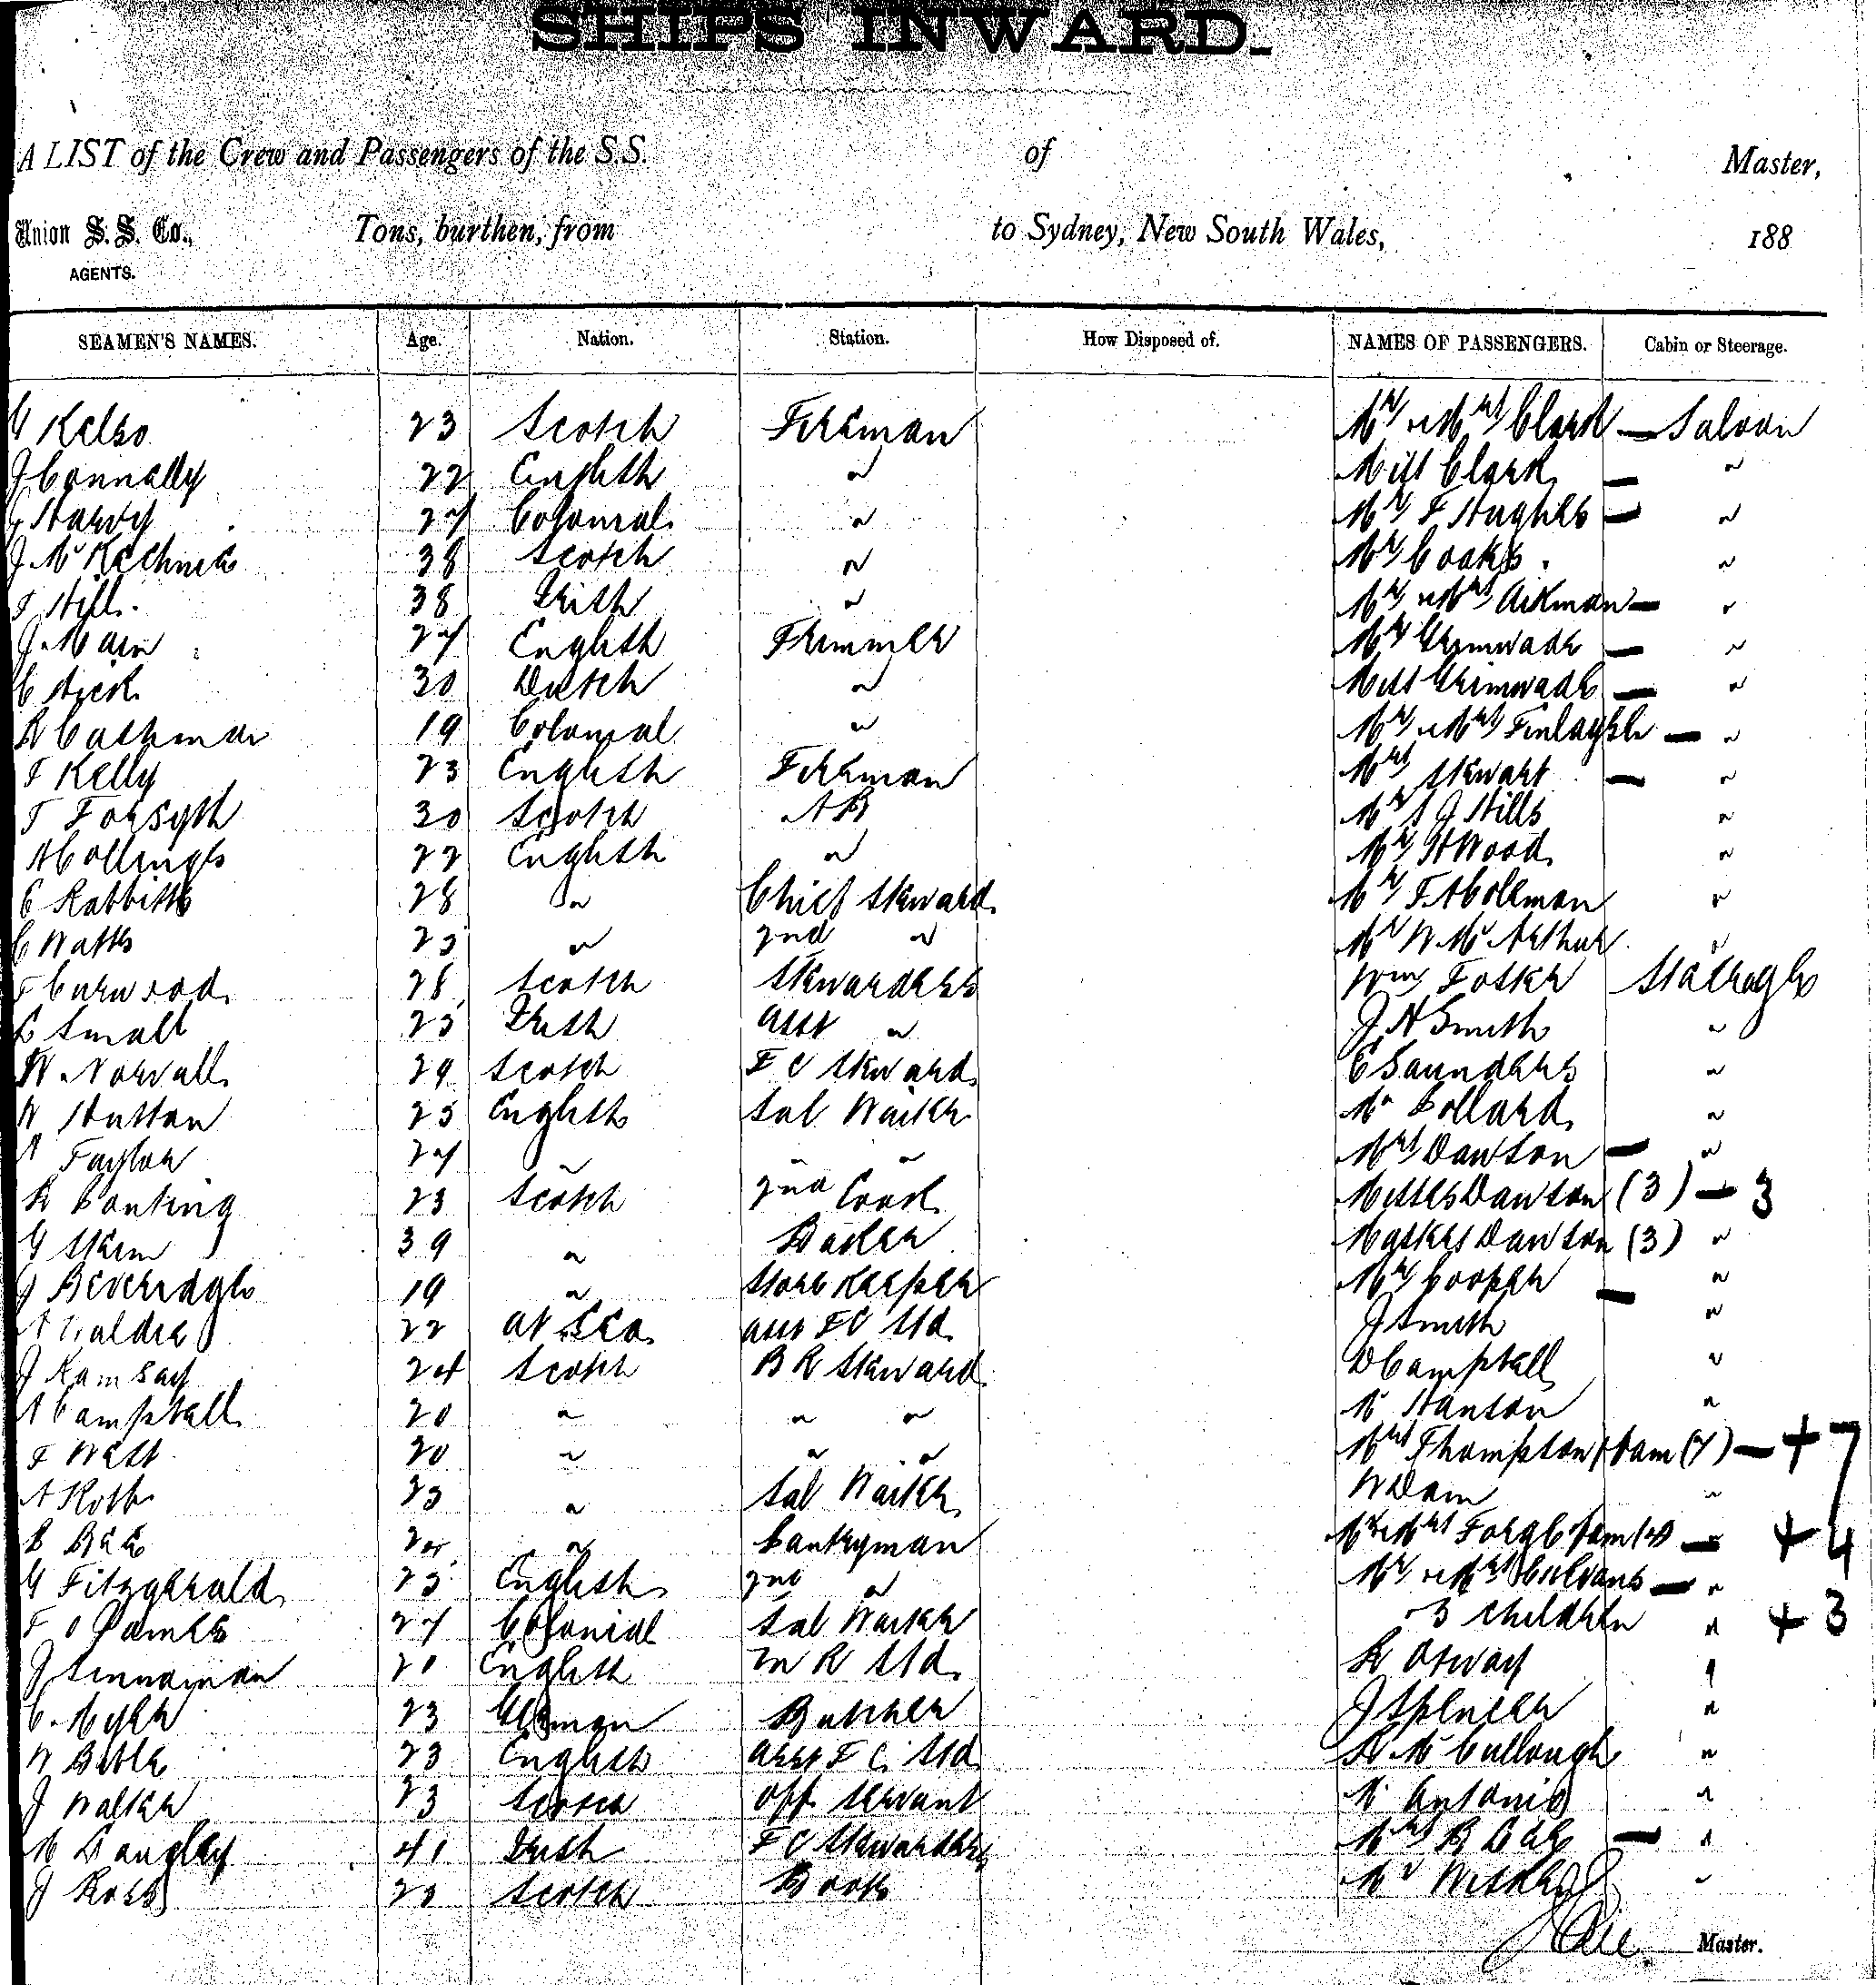 SHIPS INWARD.
A LIST of the Crew and Passengers of the S.S. of Master,
Union S. S. Co., Tons, burthen, from to Sydney, New South Wales, 188
AGENTS.
SEAMEN'S NAMES. Age. Nation. Station. How Disposed of. NAMES OF PASSENGERS. Cabin or Steerage.
G Kelso 23 Scotch Fireman Mr & Mrs Clark — Saloon
J Connolly 22 English " Miss Clark — "
Harvy 27 Colonial " Mr F Hughes — "
J. McKechnie 38 Scotch " Mr Coaks. "
T Hill. 38 Irish " Mr & Mrs Aikman — "
J. Main 27 English Trimmer Mr Grimwade — "
C Hick 30 Dutch " Miss Grimwade — "
R Cashman 19 Colonial " Mr & Mrs Finlayson — "
T Kelly 23 English Fireman Mrs Stewart — "
T Forsyth 30 Scotch AB Mr S J Hills "
A Collings 22 English " Mr H Wood "
C Rabbitts 28 " Chief Steward Mr F A Collman "
C Watts 25 " 2nd " Mr W McArthur "
28 Scotch Stewardess Wm Foster Steerage
Small 25 Irish Asst " J H Smith "
W. Norvall 29 Scotch F C Steward E Saunders "
W Hutton 25 English Sal Waiter Mr Pollard "
A Taylor 27 " " " Mrs Dawson — "
R Banting 23 Scotch 2nd Cook Misses Dawson (3) — 3
G Stein 39 " Baker Masters Dawson (3) "
J Beveridge 19 " Store Keeper Mr Cooper — "
A 22 At Sea Asst F C Std J Smith "
J Ramsay 24 Scotch B R Steward D Campbell "
A Campbell 20 " " " Hanson "
F West 20 " " " Mrs Thompson & fam (7) — + 7
A Ross 23 " Sal Waiter W Dam "
Bee " Pantryman Mr & Mrs Forge & fam (4) — " + 4
G Fitzgerald 25 English 2nd " Mr & Mrs — "
F 27 Colonial Sal Waiter 3 Children " + 3
J Sinnaman English R Std. R Otway "
C. Myer 23 German Butcher J Spencer "
W 23 English Asst F C. Std R McCullough "
J Walker 23 Scotch Off. Servant Antonio "
M Langley 41 Irish F C Stewardess Mrs — "
J Ross Scotch Boots Mr "
Master.